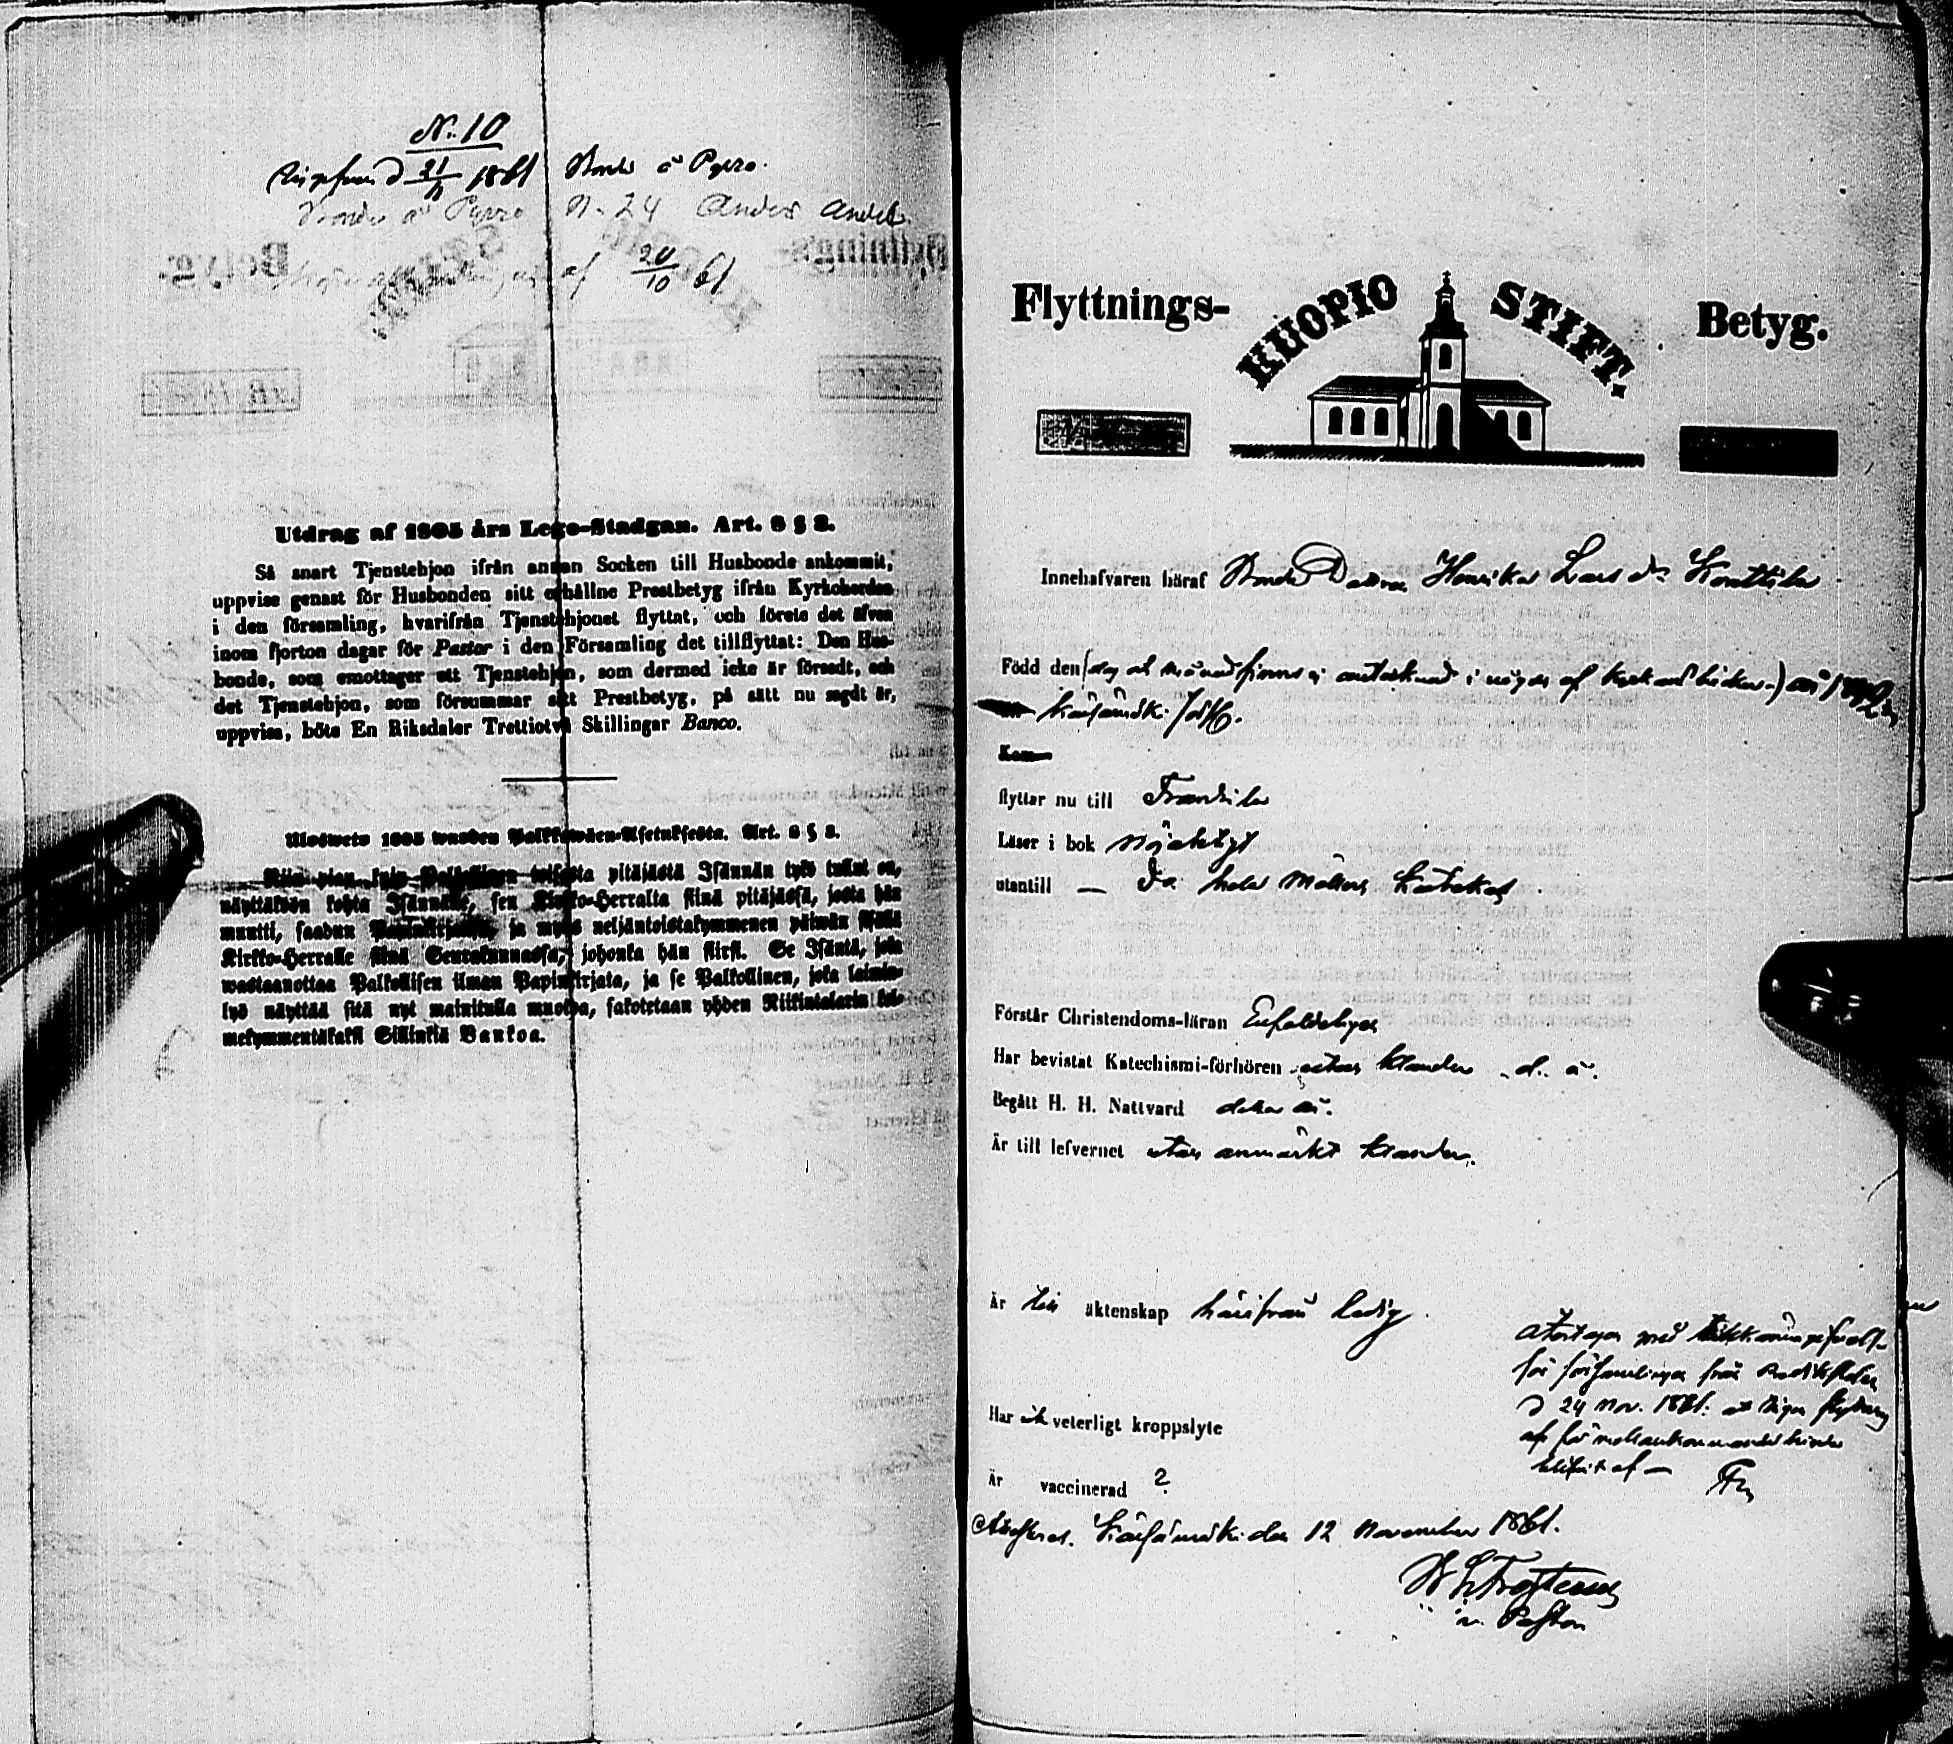 No. 10
21/11 1861 Bonde å Pyrro.
Bonde å Pyrro N. 24 Anders Anders
af 20/10 61
Utdrag af 1805 års Lego-Stadgan. Art. 6 § 8.
Så snart Tjenstehjon ifrån annan Socken till Husbonde ankommit,
uppvise genast för Husbonden sitt erhållne Prestbetyg ifrån Kyrkoherden
i den församling, hvarifrån Tjenstehjonet flyttat, och förete det äfven
inom fjorton dagar för Pastor i den Församling det tillflyttat: Den Hus-
bonde, som emottager ett Tjenstehjon, som dermed icke är försedt, och
det Tjenstehjon, som försummar sitt Prestbetyg, på sätt nu sagdt är,
uppvisa, böte En Riksdaler Trettiotvå Skillingar Banco.
Ulosweto 1805 wuoden Palkkawäen-Asetuksesta. Art. 6 § 8.
Niin pian kuin Palkollinen toisesta pitäjästä Isännän työ tullut on,
näyttäköön kohta Isännälle, sen Kirkko-Herralta siinä pitäjässä, josta hän
muutti, saadun Papinkirjansa, ja myös neljäntoistakymmenen päiwän sisällä
Kirkko-Herralle siinä Seurakunnassa, johonka hän siirsi. Se Isäntä, joka
wastaanottaa Palkollisen ilman Papinkirjata, ja se Palkollinen, joka laimin-
lyö näyttää sitä nyt mainitulla muotoa, sakotetaan yhden Riikintalarin kol-
mekymmentäkaksi Sillinkiä Bankoa.
Flyttnings- KUOPIO STIFT. Betyg.
Innehafvaren häraf Bonde Dottren Henrika Lars dr Konttila
Född den (dag och månad finnes ej antecknad i någon af kyrkans böcker) år 1842
Kärsämäki
flyttar nu till Frantsila
Läser i bok Nöjaktigt
utantill — Do hela Katekes
Förstår Christendoms-läran Enfaldeligen
Har bevistat Katechismi-förhören utan klander d. å.
Begått H. H. Nattvard detta år.
Är till lefvernet utan anmärkt klander.
Är till äktenskap härifrån ledig.
Har ej veterligt kroppslyte
Är vaccinerad ?
med
för församlingen från
d 24 Nov. 1861. at
af för mellankommande hinder
af — Fr
Kärsämäki den 12 November 1861.
Pastor